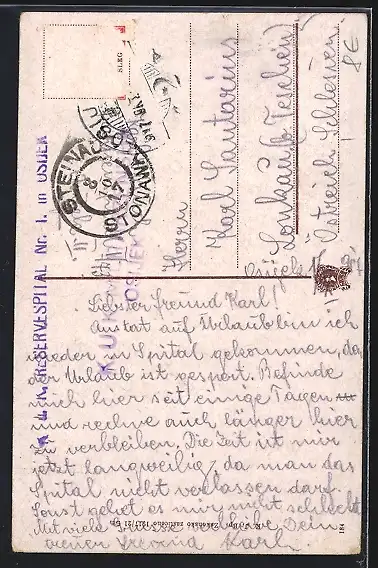 SLEG
STEINAU
STONAWA
8 9 17
K. u. K. RESERVESPITAL Nr. 1. in OSIJEK
OSIJEK
Herrn
Karl Santarius
Lonkau b Teschen
Östreich Schlesien
8€
Liebster freund Karl!
Anstat auf Urlaub bin ich
wieder in Spital gekommen, da
der Urlaub ist gesport. Befinde
mich hier seit einige Tagen
und rechne auch länger hier
zu verbleiben. Die Zeit ist mir
jetzt langweilig, da man das
Spital nicht verlassen darf.
Sonst gehet es mir nicht schlecht
Mit viele Grüsse verbleibe Dein
treuer freund Karl.
184